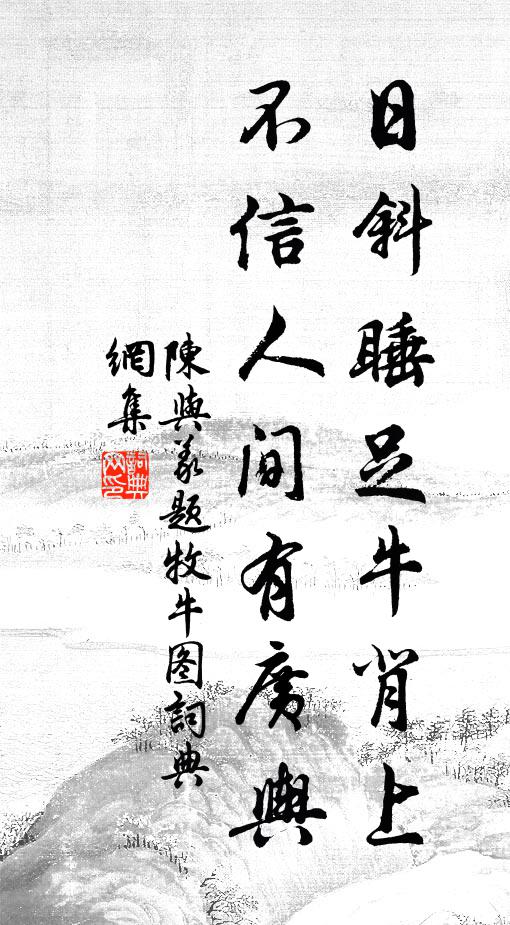 日斜睡足牛背上
不信人間有廣輿
陳與義題牧牛图詞典
網集
詞典